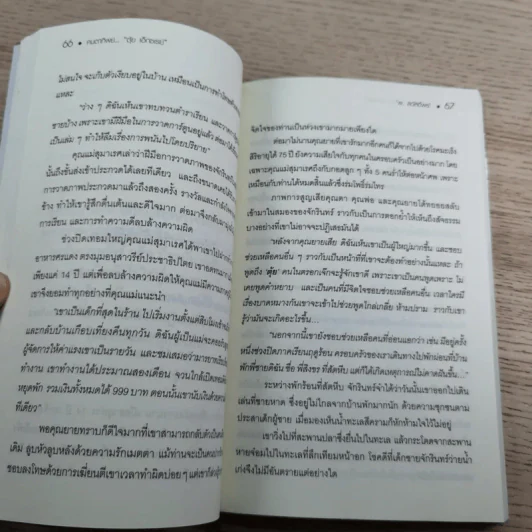 ๖๖ • คนตาทิพย์... "ตุ้ย เอ็กซเรย์"
ไม่สนใจ จะเก็บตัวเงียบอยู่ในบ้าน เหมือนเป็นการทำโทษตัว
แหละ
"ว่าง ๆ ดิฉันเห็นเขาทบทวนตำราเรียน และ
ชายบ้าง เพราะเขามีฝีมือในการวาดการ์ตูนอยู่แล้ว
เป็นเล่ม ๆ ทำให้ลืมเรื่องการพนันไปโดยปริยาย"
คุณแม่สุมาเรศเล่าว่าฝีมือการวาดภาพของจักรินทร์
นั้นถึงขั้นส่งเข้าประกวดได้เลยทีเดียว และถึงขนาด
การวาดภาพประกวดมาแล้วถึงสองครั้ง รางวัลและกำลังใจ
ช้าง ทำให้เขารู้สึกตื่นเต้นและดีใจมาก ต่อมาจึงกลับมา
การเรียน และการทำความดีลบล้างความผิด
ช่วงปิดเทอมใหญ่คุณแม่สุมาเรศได้พาเขาไปฝาก
อาหารศรแดง ตรงมุมอนุสาวรีย์ประชาธิปไตย โดยเขาอดทน
เพียงแค่ 14 ปี แต่เพื่อลบล้างความผิดให้คุณแม่มีความภาคภูมิ
เขาจึงยอมทำทุกอย่างที่คุณแม่แนะนำ
"เขาเป็นเด็กที่สุดในร้าน ไปเริ่มงานตั้งแต่สิบโมงเช้า
และกลับบ้านเกือบเที่ยงคืนทุกวัน ดิฉันผู้เป็นแม่จะไป
ผู้จัดการให้ค่าแรงเขาเป็นรายวัน และชมเสมอว่ามารยาท
ทำงาน เขาทำงานได้ประมาณสองเดือน จวนใกล้เปิดเทอม
หยุดพัก รวมเงินทั้งหมดได้ 999 บาท ตอนนั้นเขานับเงินด้วย
ทีเดียว"
พอคุณยายทราบก็ดีใจมากที่เขาสามารถกลับตัวเป็นคน
เดิม ลูบหัวลูบหลังด้วยความรักเมตตา แม้ท่านจะเป็นคน
ชอบลงโทษด้วยการเฆี่ยนตีเขาเวลาทำผิดบ่อยๆ แต่เขาก็
• ๖๗
จิตใจของท่านเป็นห่วงเขามากมายเพียงใด
ต่อมาไม่นานคุณยายที่เขารักมากอีกคนก็ได้จากไปด้วยโรคมะเร็ง
สิริอายุได้ 75 ปี ยังความเสียใจกับทุกคนในครอบครัวเป็นอย่างมาก โดย
เฉพาะคุณแม่สุมาเรศถึงกับกอดลูก ๆ ทั้ง 5 คนร่ำไห้ต่อหน้าศพ เพราะ
เหมือนกับท่านได้หมดสิ้นแล้วซึ่งร่มโพธิ์ร่มไทร
ภาพการสูญเสียคุณตา คุณพ่อ และคุณยายได้โลดแล่นสลับ
เข้ามาในสมองของจักรินทร์ ราวกับเป็นการตอกย้ำให้เห็นถึงสัจธรรม
บางอย่างที่เขาไม่อาจจะปฏิเสธมันได้
"หลังจากคุณยายเสีย ดิฉันเห็นเขาเป็นผู้ใหญ่มากขึ้น และชอบ
ช่วยเหลือคนอื่น ๆ ราวกับเป็นหน้าที่ที่เขาจะต้องทำอย่างนั้นแหละ ถ้า
พูดถึง 'ตุ้ย' คนในตรอกเจ๊กจะรู้จักเขาดี เพราะเขาเป็นคนพูดเพราะ ไม่
เคยพูดคำหยาบ และเป็นคนที่มีจิตใจชอบช่วยเหลือคนอื่น เวลาใครมี
เรื่องบาดหมางกันเขาจะเข้าไปช่วยพูดไกล่เกลี่ย ห้ามปราม ราวกับเขา
รู้ว่ามันจะเกิดอะไรขึ้น"
"นอกจากนี้เขายังชอบช่วยเหลือคนที่อ่อนแอกว่า เช่น มีอยู่ครั้ง
หนึ่งช่วงปิดภาคเรียนฤดูร้อน ครอบครัวของเราเดินทางไปพักผ่อนที่บ้าน
พักพี่ชายดิฉัน ชื่อ พี่สิงขร ที่สัตหีบ แต่ก็เกิดเหตุการณ์ไม่คาดฝันขึ้น"
ระหว่างพักร้อนที่สัตหีบ จักรินทร์จำได้ว่าวันนั้นเขาออกไปเดิน
เล่นที่ชายหาด ซึ่งอยู่ไม่ไกลจากบ้านพักมากนัก ด้วยความซุกซนตาม
ประสาเด็กผู้ชาย เมื่อมองเห็นน้ำทะเลสีครามก็หักห้ามใจไว้ไม่อยู่
เขาวิ่งไปที่สะพานปลาซึ่งยื่นไปในทะเล แล้วกระโดดจากสะพาน
หายจ๋อมไปในทะเลที่ลึกเทียมหน้าอก โชคดีที่เด็กชายจักรินทร์ว่ายน้ำ
เก่งจึงไม่มีอันตรายแต่อย่างใด